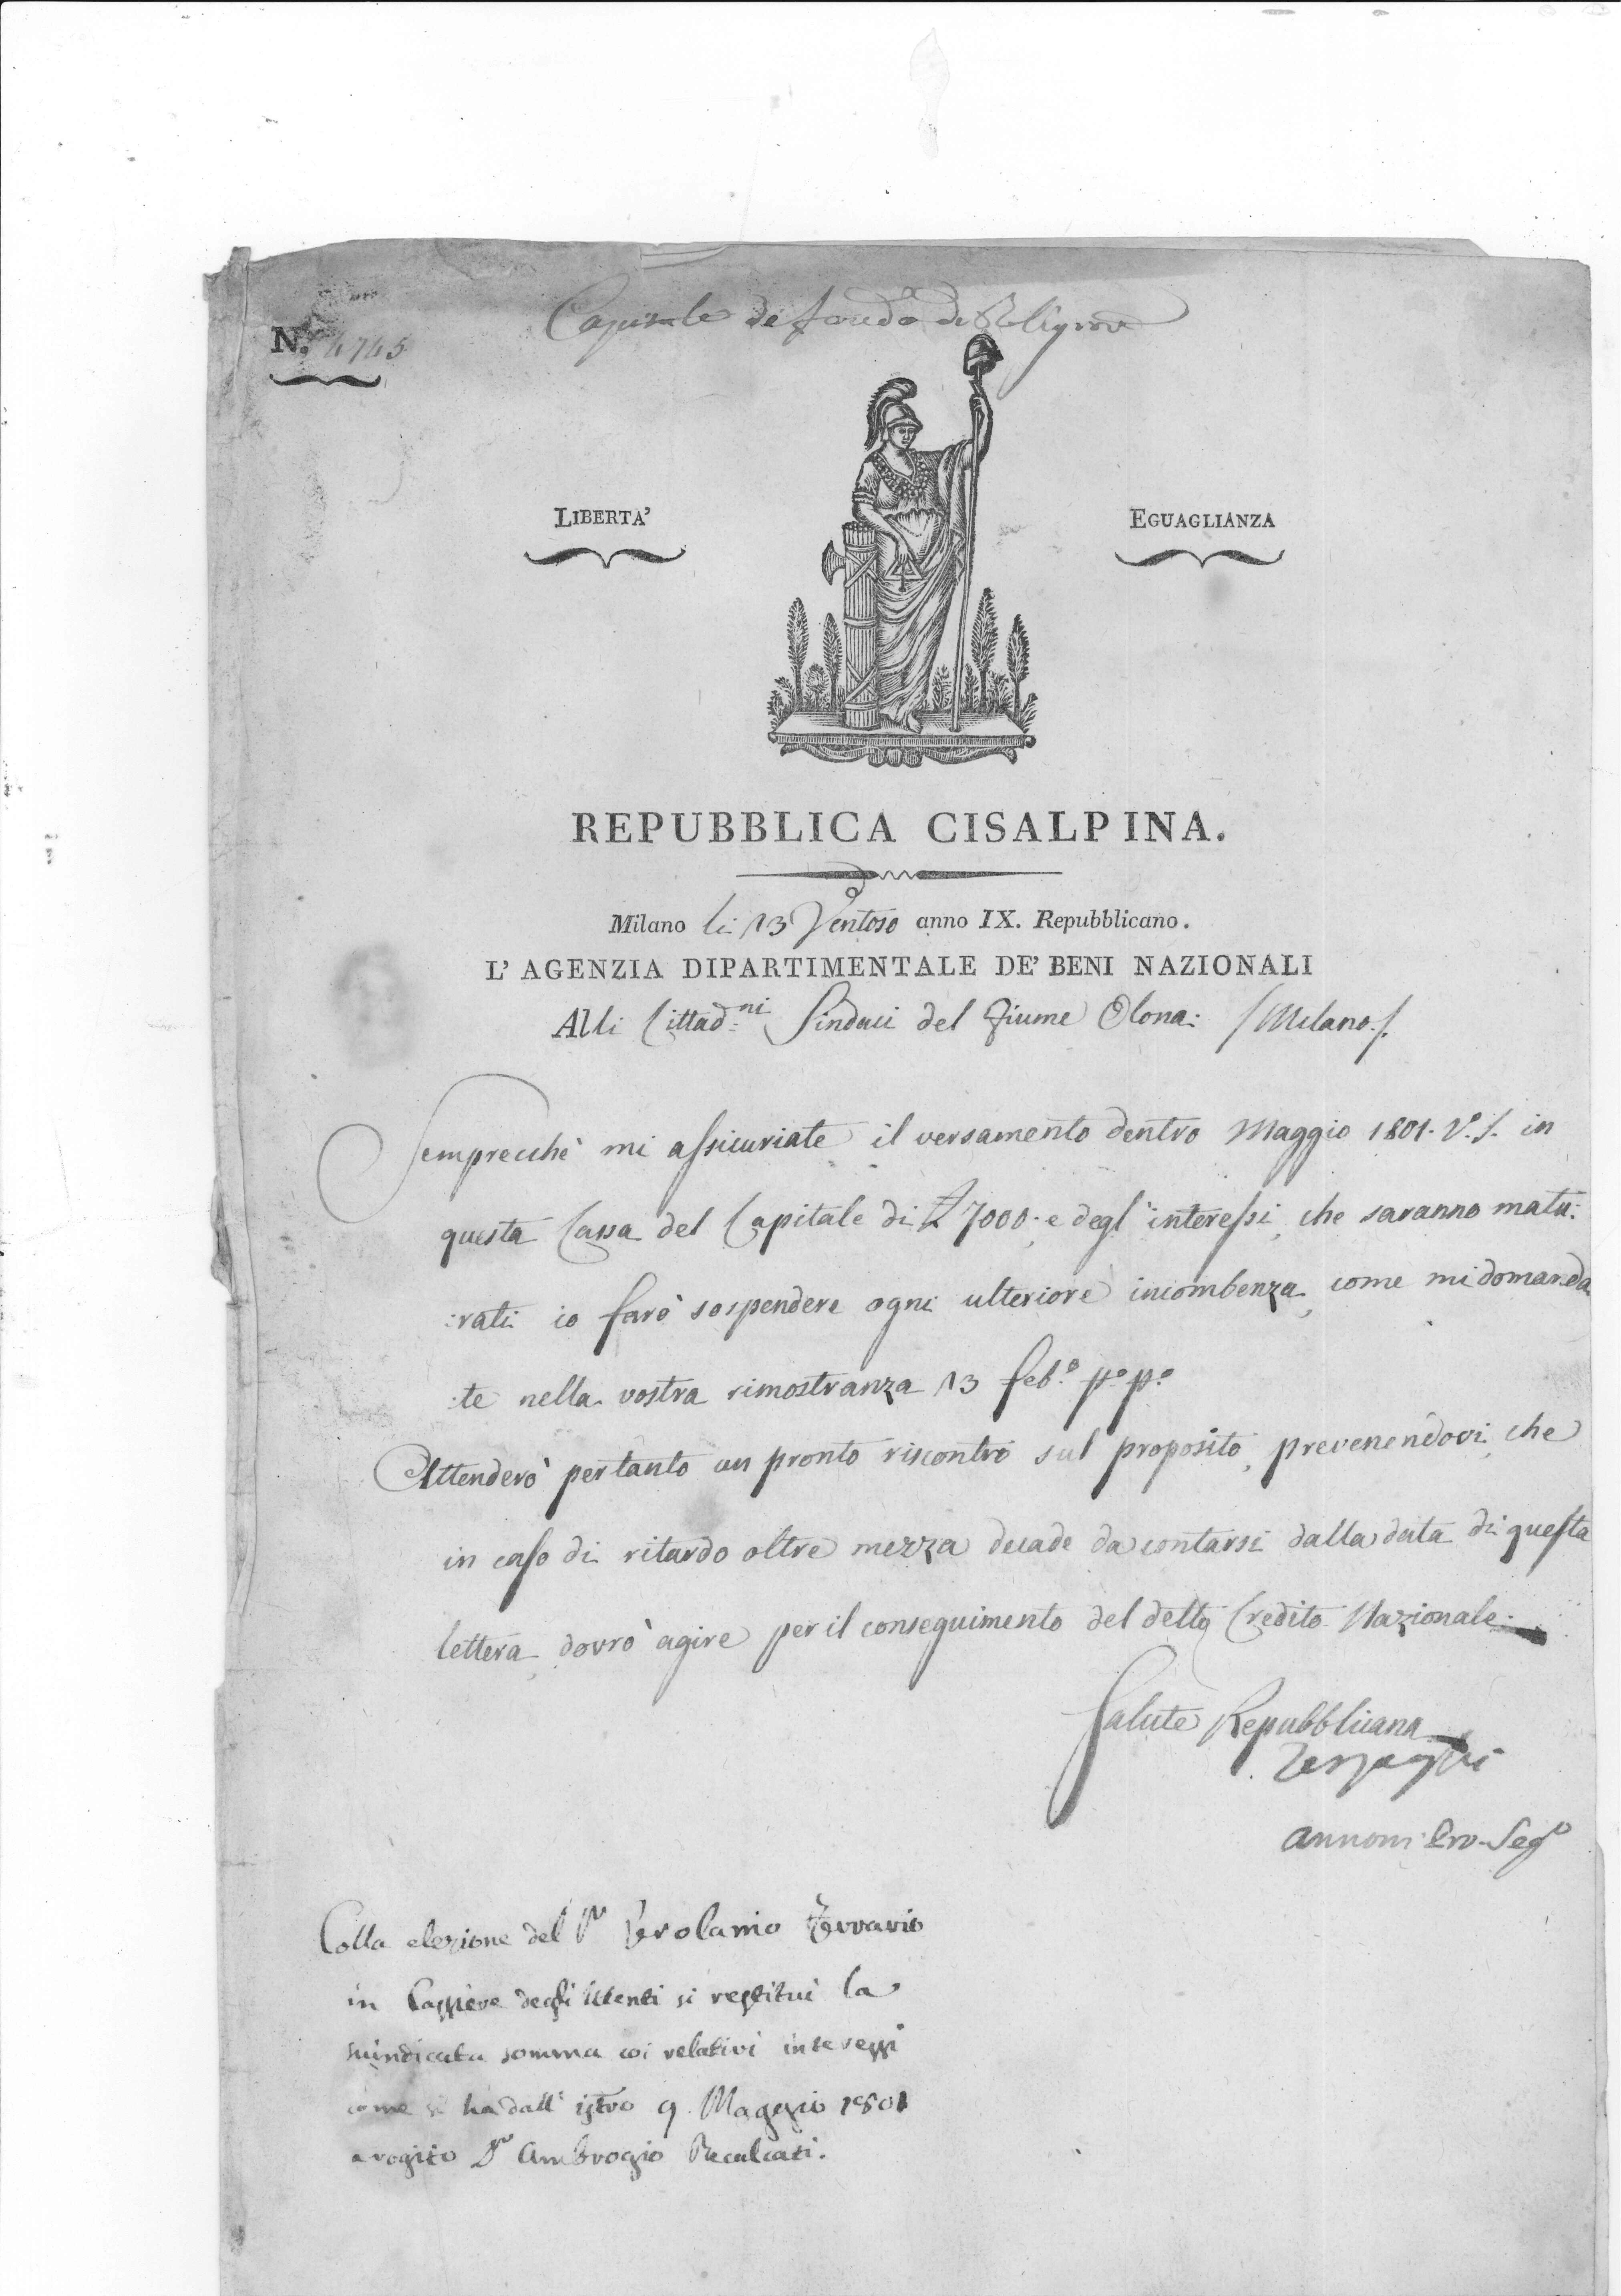 N.º 4745
Capitale de fondo di Religione
LIBERTA'
EGUAGLIANZA
REPUBBLICA CISALPINA.
Milano li 13 Ventoso anno IX. Repubblicano.
L' AGENZIA DIPARTIMENTALE DE' BENI NAZIONALI
Alli Cittad:ni Sindaci del Fiume Olona: /Milano./.
Semprecchè mi assicuriate il versamento dentro Maggio 1801. V.S. in
questa Cassa del Capitale di £ 7000; e degl' interessi, che saranno matu:
:rati: io farò sospendere ogni ulteriore incombenza, come mi domanda
:te nella vostra rimostranza 13 feb.º p.º p.º
Attenderò pertanto un pronto riscontro sul proposito, prevenendovi, che
in caso di ritardo oltre mezza decade da contarsi dalla data di questa
lettera, dovrò agire per il conseguimento del detto Credito Nazionale.
Salute Repubblicana
Terzaghi
Annoni Pro-Segº
Colla elezione del Sr Gerolamo Ferrario
in Cassiere degli Utenti si restituì la
suindicata somma coi relativi interessi
come si ha dall' istro 9. Maggio 1801
a rogito Dr Ambrogio Recalcati.